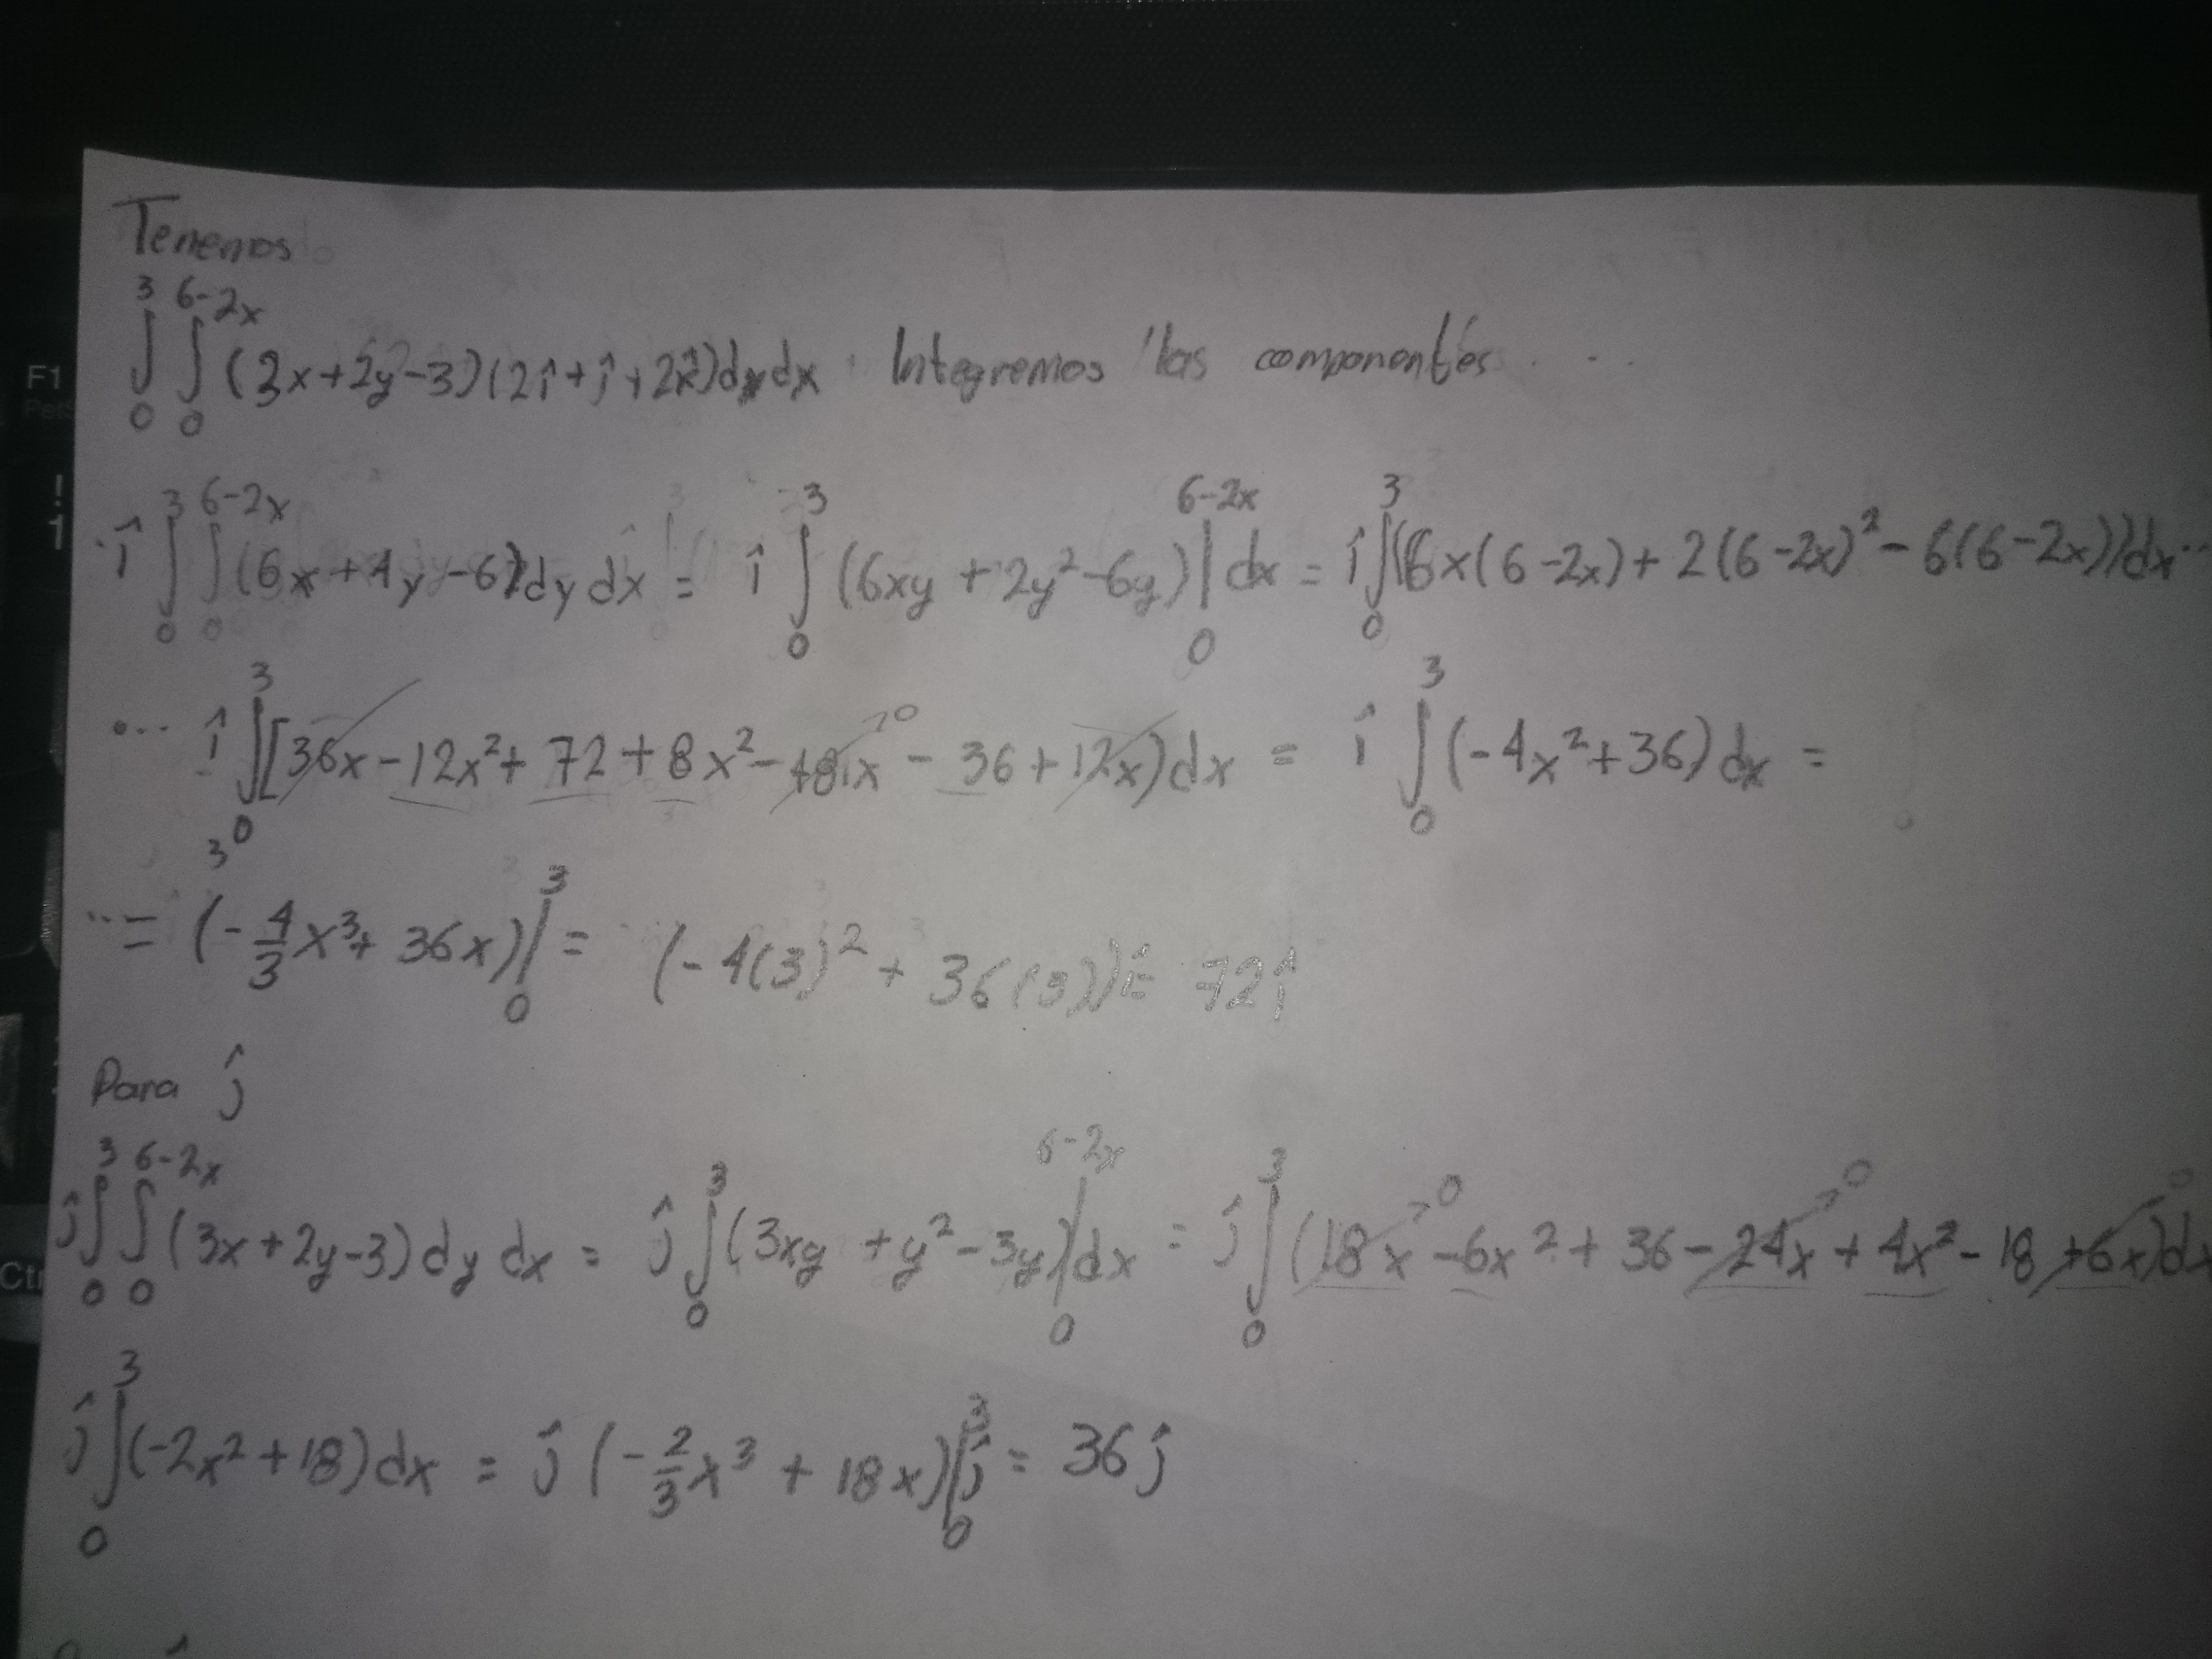 Tenemos
∫₀³ ∫₀^{6-2x} (3x+2y-3)(2î+ĵ+2k̂)dydx. Integremos las componentes...
î ∫₀³ ∫₀^{6-2x} (6x+4y-6)dydx = î ∫₀³ (6xy + 2y²-6y)|₀^{6-2x} dx = î ∫₀³ (6x(6-2x)+2(6-2x)²-6(6-2x))dx...
... î ∫₀³ [36x-12x²+72+8x²-48x-36+12x)dx = î ∫₀³ (-4x²+36)dx =
...= (-4/3 x³+36x)|₀³ = (-4(3)²+36(3))î= 72î
Para ĵ
ĵ ∫₀³ ∫₀^{6-2x} (3x+2y-3)dydx = ĵ ∫₀³ (3xy+y²-3y)|₀^{6-2x} dx = ĵ ∫₀³ (18x-6x²+36-24x+4x²-18+6x)dx
ĵ ∫₀³ (-2x²+18)dx = ĵ (-2/3 x³+18x)|₀³ ĵ = 36ĵ
F1
!
1